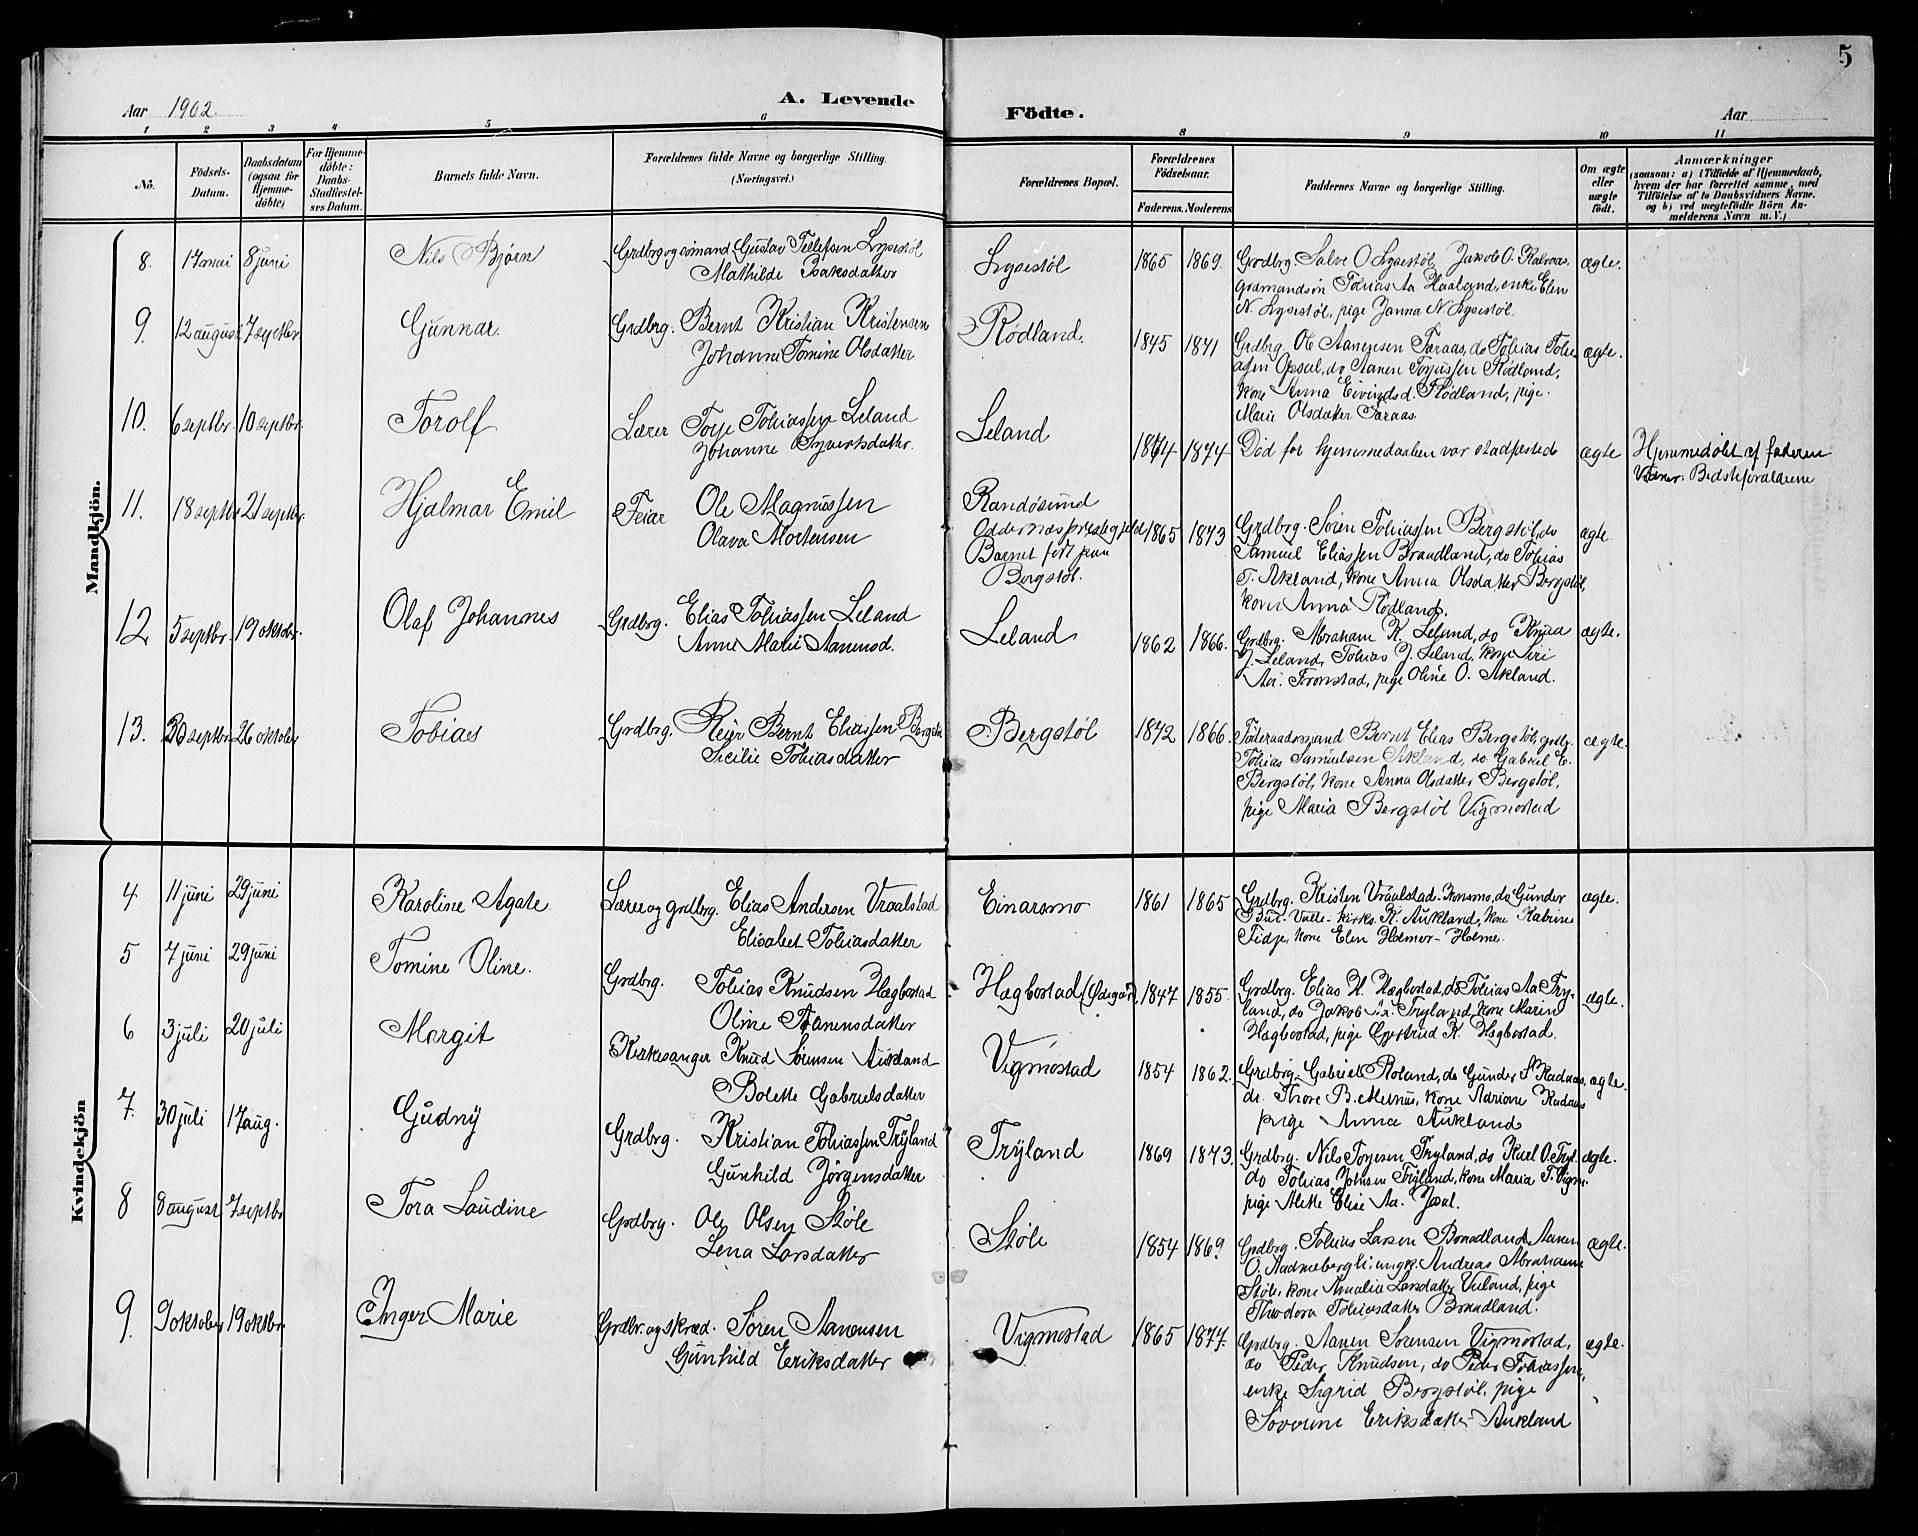 5
Aar 1902.
A. Levende
Födte.
Aar
1 2 3 4 5 6 8 9 10 11
No.
Födsels-Datum.
Daabsdatum (ogsaa for Hjemmedöbte)
For Hjemmedöbte: Daabs-Stadfæstelses Datum.
Barnets fulde Navn.
Forældrenes fulde Navne og borgerlige Stilling. (Næringsvei.)
Forældrenes Bopæl.
Forældrenes Födselsaar.
Faderens. Moderens
Faddernes Navne og borgerlige Stilling.
Om ægte eller uægte födt.
Anmærkninger
(saasom: a) i Tilfælde af Hjemmedaab, hvem der har forrettet samme, med Tilföielse af to Daabsvidners Navne, og b) ved uægtefödte Börn Anmelderens Navn m. V.)
Mandkjön.
8. 17 mai 8 juni Nils Bjørn
Grdbrg og sömand Gustav Tellefsen Lysestöl
Mathilde Isaksdatter
Lysestöl 1865 1869.
Grdbrg. Salve O Lysestöl, Jakob O. Kalvaas,
grdmandsön Tobias Aa Haaland, enke Elen
N. Lysestöl, pige Janna N. Lysestöl.
ægte.
9. 12 august 7 septbr. Gunnar.
Grdbrg. Bernt Kristian Kristensen
Johanne Tomine Olsdatter
Rödland. 1845 1871
Grdbrg. Ole Aanensen Faraas, do Tobias Tobi-
asen Opsal, do Aanen Torjussen Rödland,
kone Anna Eivindsd. Rödland, pige
Marie Olsdatter Faraas.
ægte.
10. 6 septbr. 10 septbr. Torolf
Lærer Torje Tobiassen Leland
Johanne Syvertsdatter.
Leland 1874 1874
Död før hjemmedaaben var stadfæstede
ægte
Hjemmedöbt af faderen
Vidner: Bedsteforældrene
11. 18 septbr 21 septbr. Hjalmar Emil
Feiar Ole Magnussen
Olava Mortensen
Randösund
Oddernes prestegjeld
Barnet födt paa
Bergstöl.
1865 1873
Grdbrg. Sören Tobiassen Bergstöl, do
Samuel Eliassen Braadland, do Tobias
T. Aukland, kone Anna Olsdatter Bergstöl,
kone Anna Rödland.
ægte
12 5 septbr. 19 oktober. Olaf Johannes
Grdbrg. Elias Tobiassen Leland
Anne Marie Aanensd.
Leland 1862 1866.
Grdbrg. Abraham K. Leland, do Knud
J. Leland, Tobias J. Leland, kone Siri
Aa. Tronstad, pige Oline O. Aukland.
ægte.
13. 30 septbr. 26 oktober Tobias
Grdbrg. Reier Bernt Eliassen Bergstöl
Sicilie Tobiasdatter
Bergstöl 1872 1866.
Föderaadsmand Bernt Elias Bergstöl, grdbr.
Tobias Samuelsen Aukland, do Gabriel E.
Bergstöl, kone Anna Olsdatter Bergstöl,
pige Maria Bergstöl Vigmostad
ægte.
Kvindekjön
4 11 juni 29 juni Karoline Agate
Lærer og grdbrg. Elias Andersen Vraalstad
Elisabet Tobiasdatter
Einarsmo 1861 1865
Grdbrg. Kristen Vraalstad-Konsmo, do Gunder
Bue-Valle-kirks. K. Aukland, kone Katrine
Fidje, kone Elen Holmer-Holme.
ægte.
5 7 juni 29 juni Tomine Oline.
Grdbrg. Tobias Knudsen Hægbostad
Oline Aanensdatter
Hægbostad (Ödegård). 1847 1855.
Grdbrg. Elias H. Hægbostad, do Tobias Aa Try-
land, do Jakob Aa. Tryland, kone Marine
Hægbostad, pige Gjertrud K. Hægbostad.
ægte.
6 3 juli 20 juli Margit
Kirkesanger Knud Sörensen Aukland
Bolette Gabrielsdatter
Vigmostad 1854 1862.
Grdbrg. Gabriel Roland, do Gunder S Kadnæs,
do. Thore B. Melhus, kone Adriane Kadnæs
pige Anna Aukland
ægte.
7. 30 juli 17 aug. Gudny
Grdbrg. Kristian Tobiassen Tryland
Gunhild Jörgensdatter
Tryland 1869 1873.
Grdbrg. Nils Torjesen Tryland, do Karl O. Tryl.
do Tobias Johnsen Tryland, kone Maria T. Vigm.
pige Alette Elise Aa. Jaal.
ægte.
8 8 august 7 septbr Tora Laudine
Grdbrg. Ole Olsen Stöle
Lena Larsdatter
Stöle 1854 1869
Grdbrg. Tobias Larsen Braadland, Aanen
O. Aadnebergli, ungk. Andreas Abrahams
Stöle, kone Amalia Larsdatter Ueland, pige
Theodora Tobiasdatter Braadland.
ægte.
9. 9 oktober 19 oktbr. Inger Marie
Grdbr. og skræd. Sören Aanensen
Gunhild Eriksdatter
Vigmostad 1865 1877.
Grdbrg. Aanen Sörensen Vigmostad,
do Peder Knudsen, do Peder Tobiassen,
enke Sigrid Bergstöl, pige
Soverine Eriksdatter Aukland
ægte.